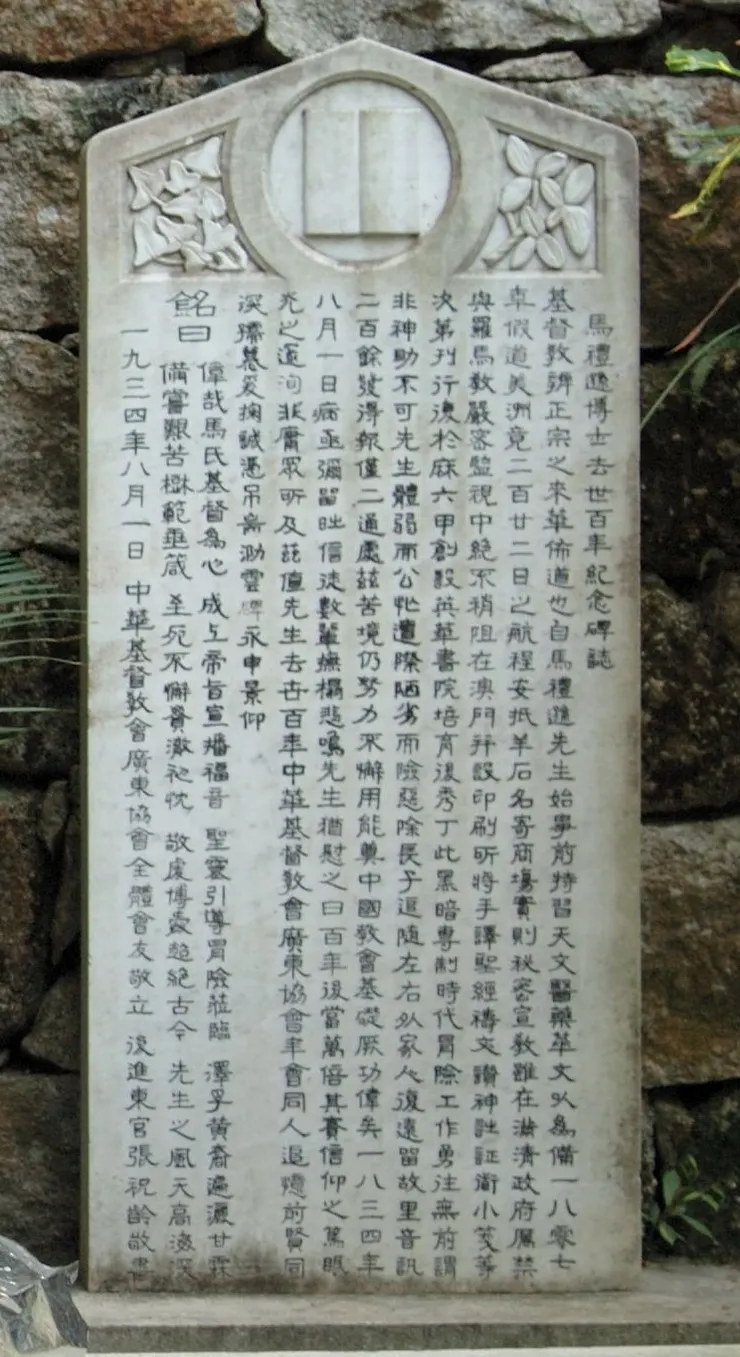 馬禮遜博士去世百年紀念碑誌
基督敎辨正宗之來華佈道也自馬禮遜先生始事前特習天文醫藥華文以為備一八零七
年假道美洲竟二百廿二日之航程安抵羊石名寄商場實則秘密宣敎雖在滿清政府厲禁
與羅馬敎嚴密監視中絕不稍阻在澳門幷設印刷所將手譯聖經禱文讚神詩証衛小箋等
次第刊行復於麻六甲創設英華書院培育後秀丁此黑暗專制時代冒險工作勇往無前謂
非神助不可先生體弱而公忙遭際陋劣而險惡除長子追随左右外家人復遠留故里音訊
二百餘發得報僅二通處茲苦境仍努力不懈用能奠中國敎會基礎厥功偉矣一八三四年
八月一日病亟彌留時信徒數輩撫榻悲鳴先生猶慰之曰百年後當萬倍其賽信仰之篤眼
光之遠洵非庸眾所及茲值先生去世百年中華基督敎會廣東協會年會同人追憶前賢同
深孺慕爰掬誠憑弔齋泐雲碑永申景仰
銘曰 偉哉馬氏基督為心 成上帝旨宣播福音 聖靈引導冒險蒞臨 澤孚黄裔遍灑甘霖
備嘗艱苦楙範垂箴 至死不懈貫澈祂忱 敬虔博愛超絕古今 先生之風天高海深
一九三四年八月一日 中華基督敎會廣東協會全體會友敬立 後進東官張祝齡敬書